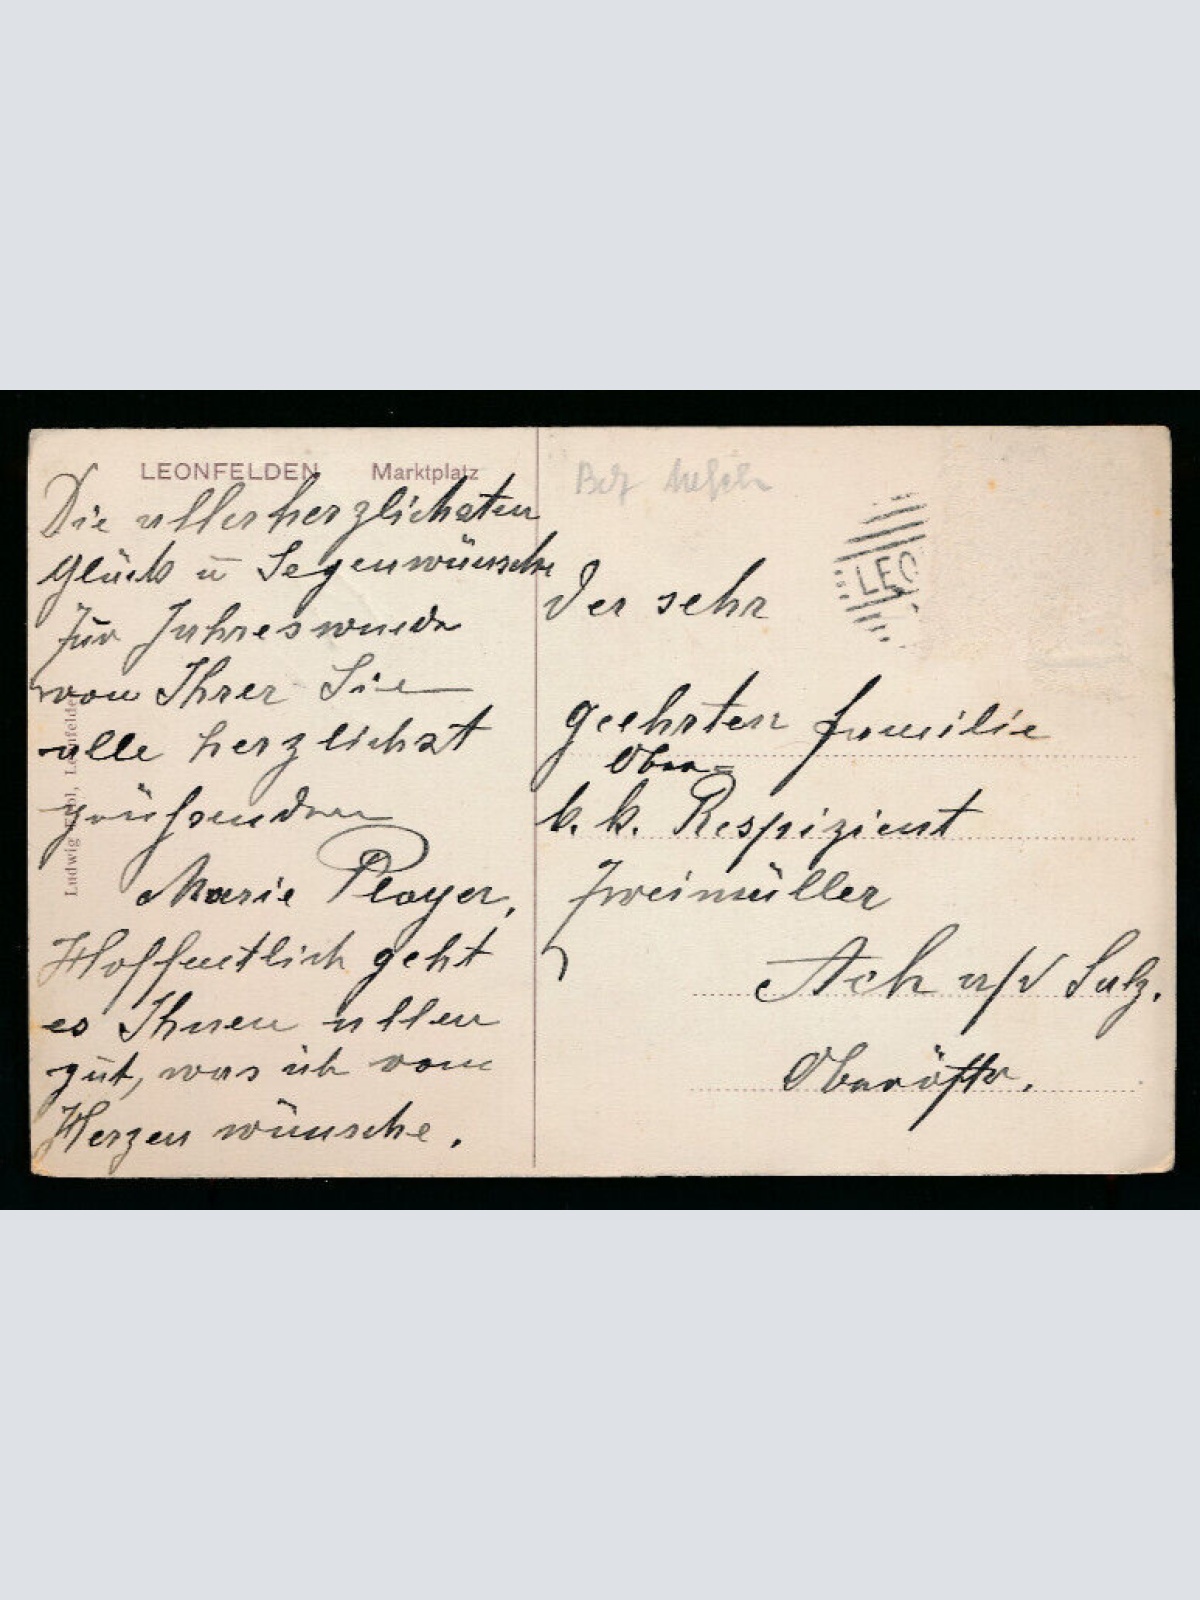 LEONFELDEN Marktplatz
Die allerherzlichsten
Glück u Segenwünsche
zur Jahreswende
von Ihrer Sie
alle herzlichst
grüßenden
Marie Ployer.
Hoffentlich geht
es Ihnen allen
gut, was ich vom
Herzen wünsche.
Ludwig Leonfelden
LEO
Der sehr
geehrten Familie
Ober-
k. k. Respizient
Zweimüller
Ach a/d Salz.
Oberöstr.